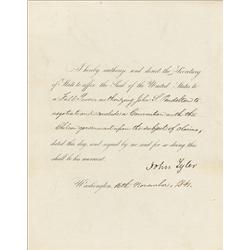 I hereby authorize and direct the Secretary
of State to affix the Seal of the United States to
a Full Power authorizing John S. Pendleton to
negotiate and conclude a Convention with the
Chilian government upon the subject of claims,
dated this day, and signed by me and for so doing this
shall be his warrant.
John Tyler
Washington, 16th November, 1841.